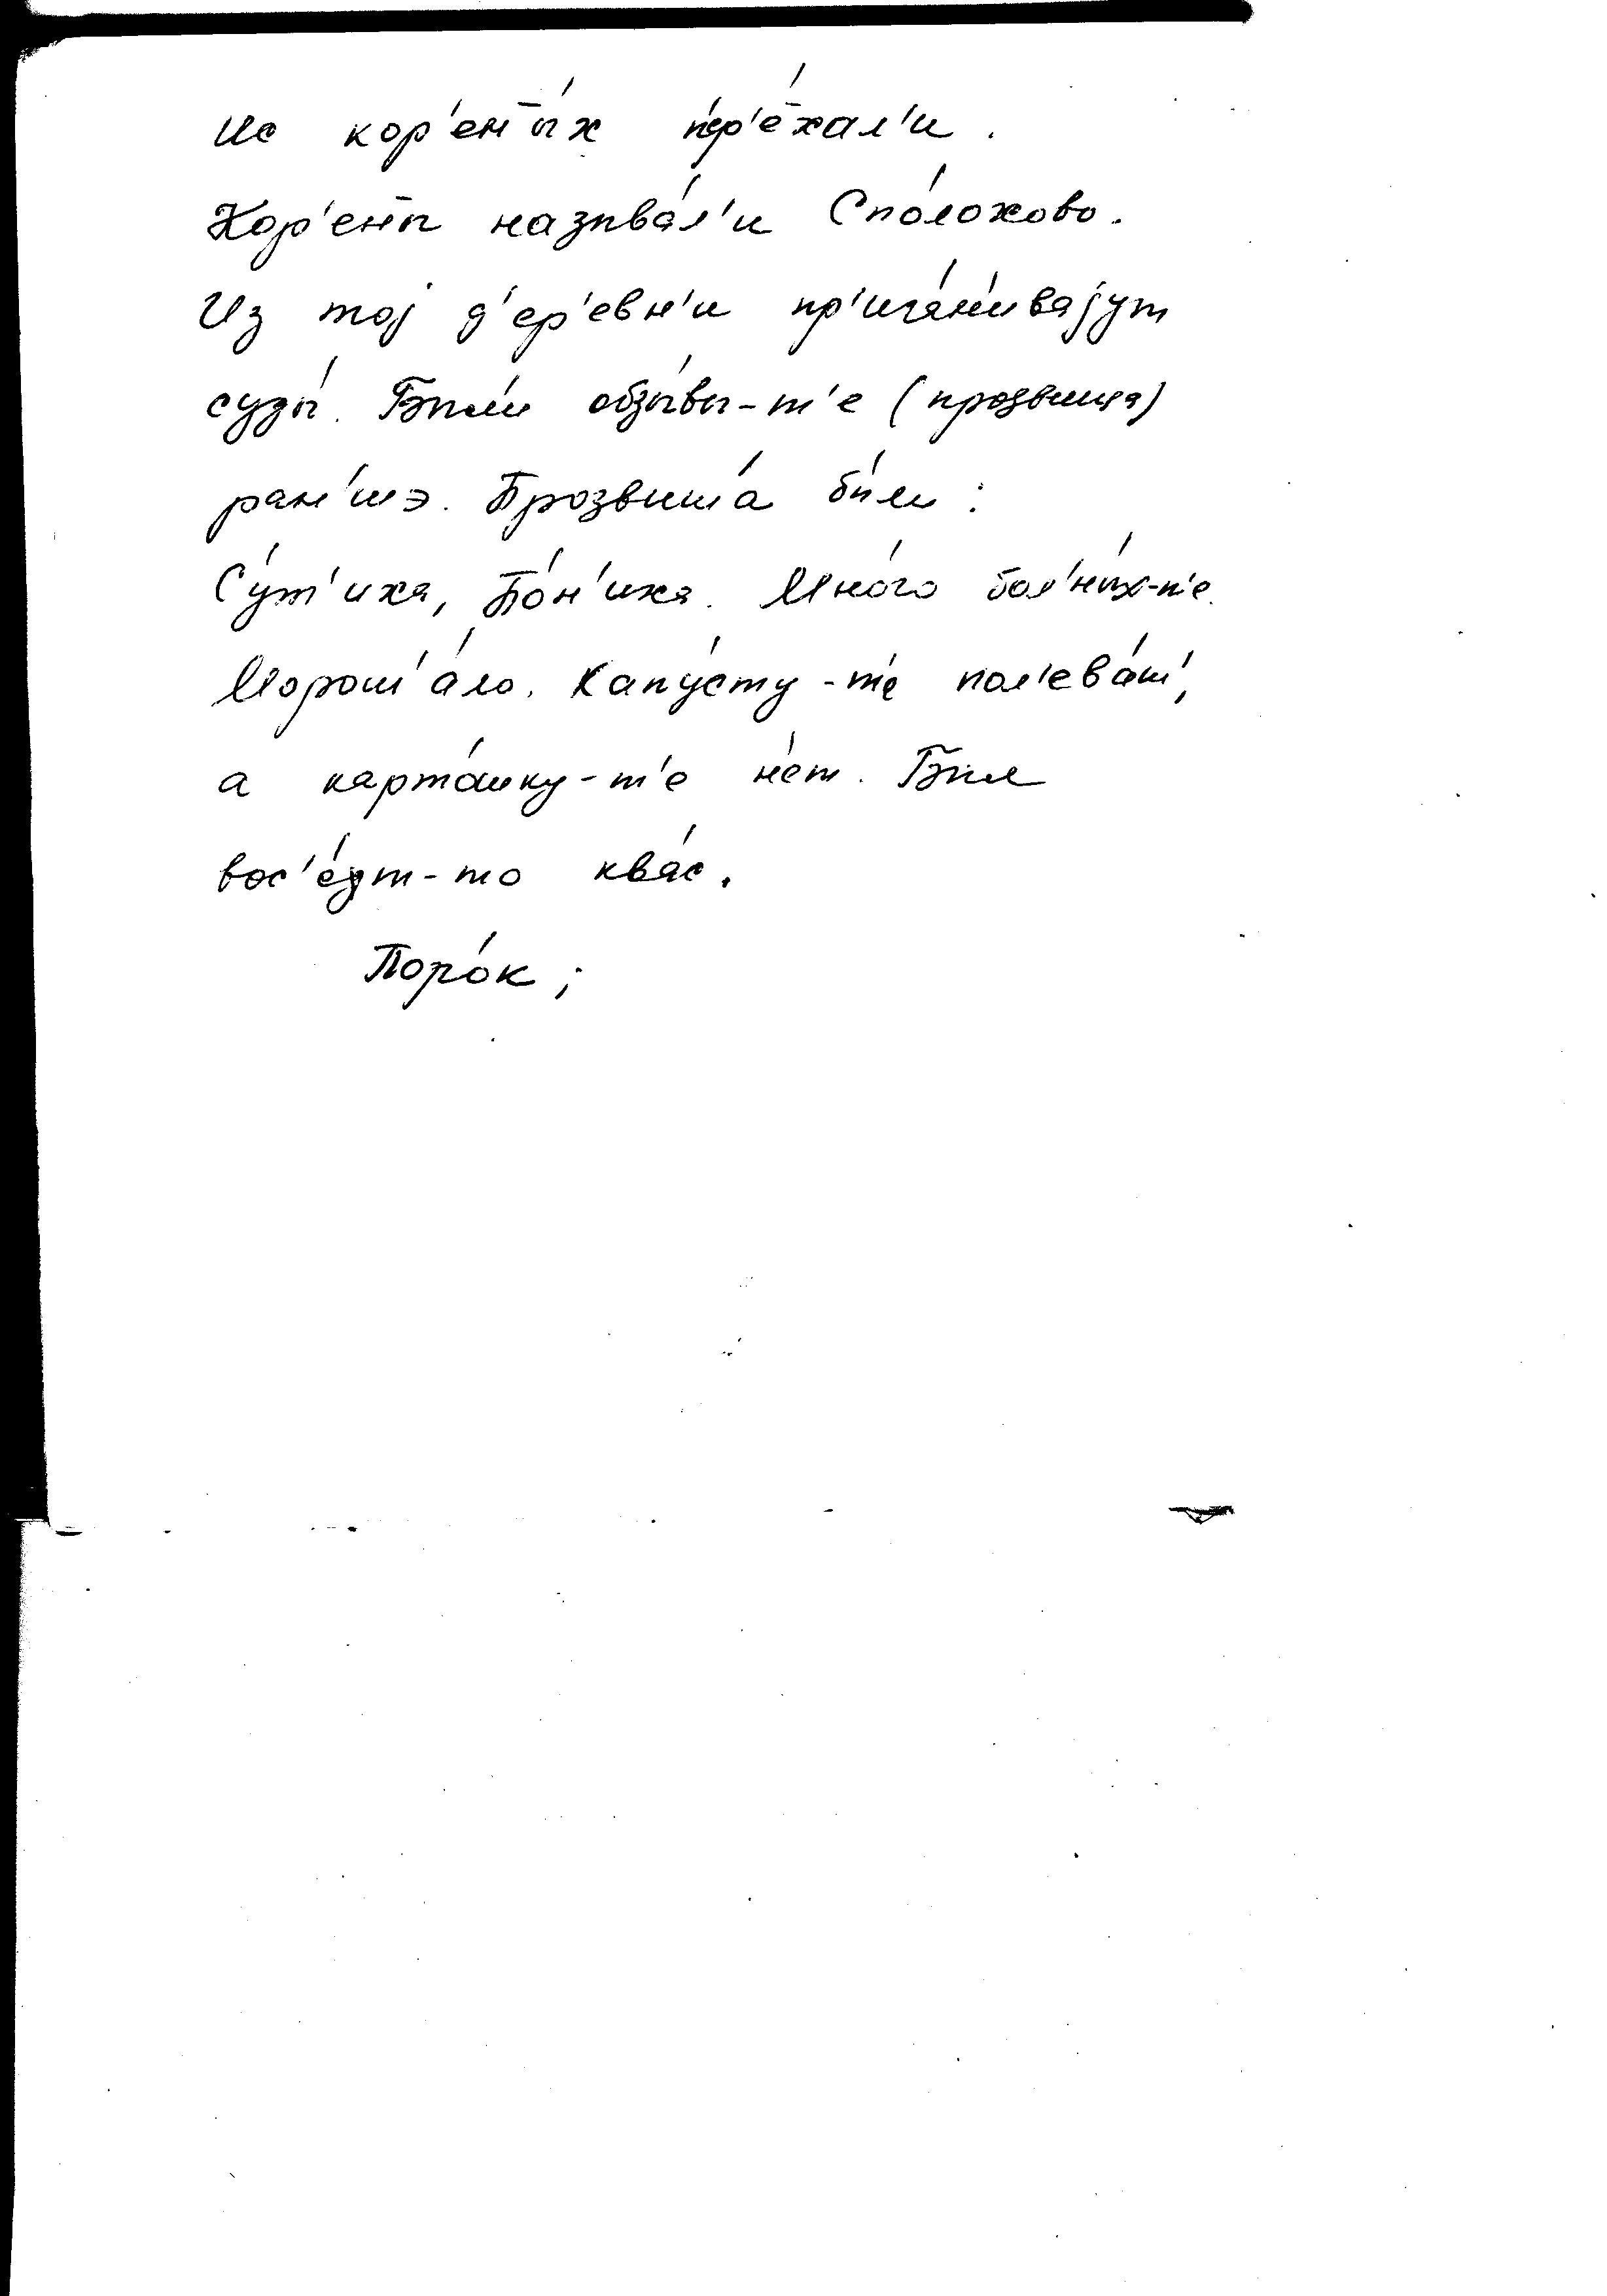 Ис кор'енты́х пр'е́хал'и.
Кор'енты называ́л'и Спо́лохово.
Из тој д'ер'евн'и пр'ига́н'ивајут
суды́. Были обзы́вы-т'е (прозвища)
ран'шэ. Прозвишша́ бы́ли:
Су́т'иха, По́н'иха. Мно́го бол'ны́х-т'е.
Морош'а́ло. Капу́сту-т'е пол'ева́т',
а карто́шку-т'е не́т. Был
вос'е́т-то ква́с.
Поро́к;